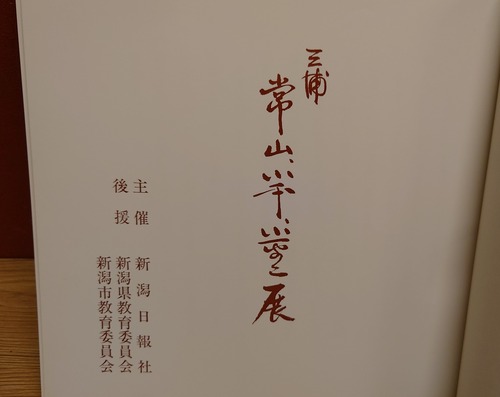 三浦
常山、小平、小平二展
主催 新潟日報社
後援 新潟県教育委員会
新潟市教育委員会